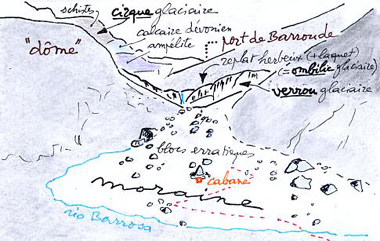 schistes
cirque glaciaire
calcaire dévonien
ampélite
"dôme"
port de Barroude
replat herbeux (+laquet)
(=ombilic glaciaire)
verrou glaciaire
blocs erratiques
cabane
moraine
rio Barrosa